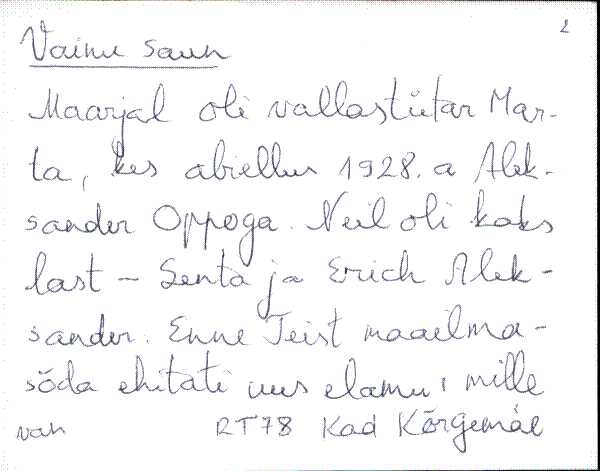 2
Vainu saun
Maarjal oli vallastütar Mar-
ta, kes abiellus 1928. a Alek-
sander Oppoga. Neil oli kaks
last – Senta ja Erich Alek-
sander. Enne Teist maailma-
sõda ehitati uus elamu, mille
van RT78 Kad Kõrgemäe